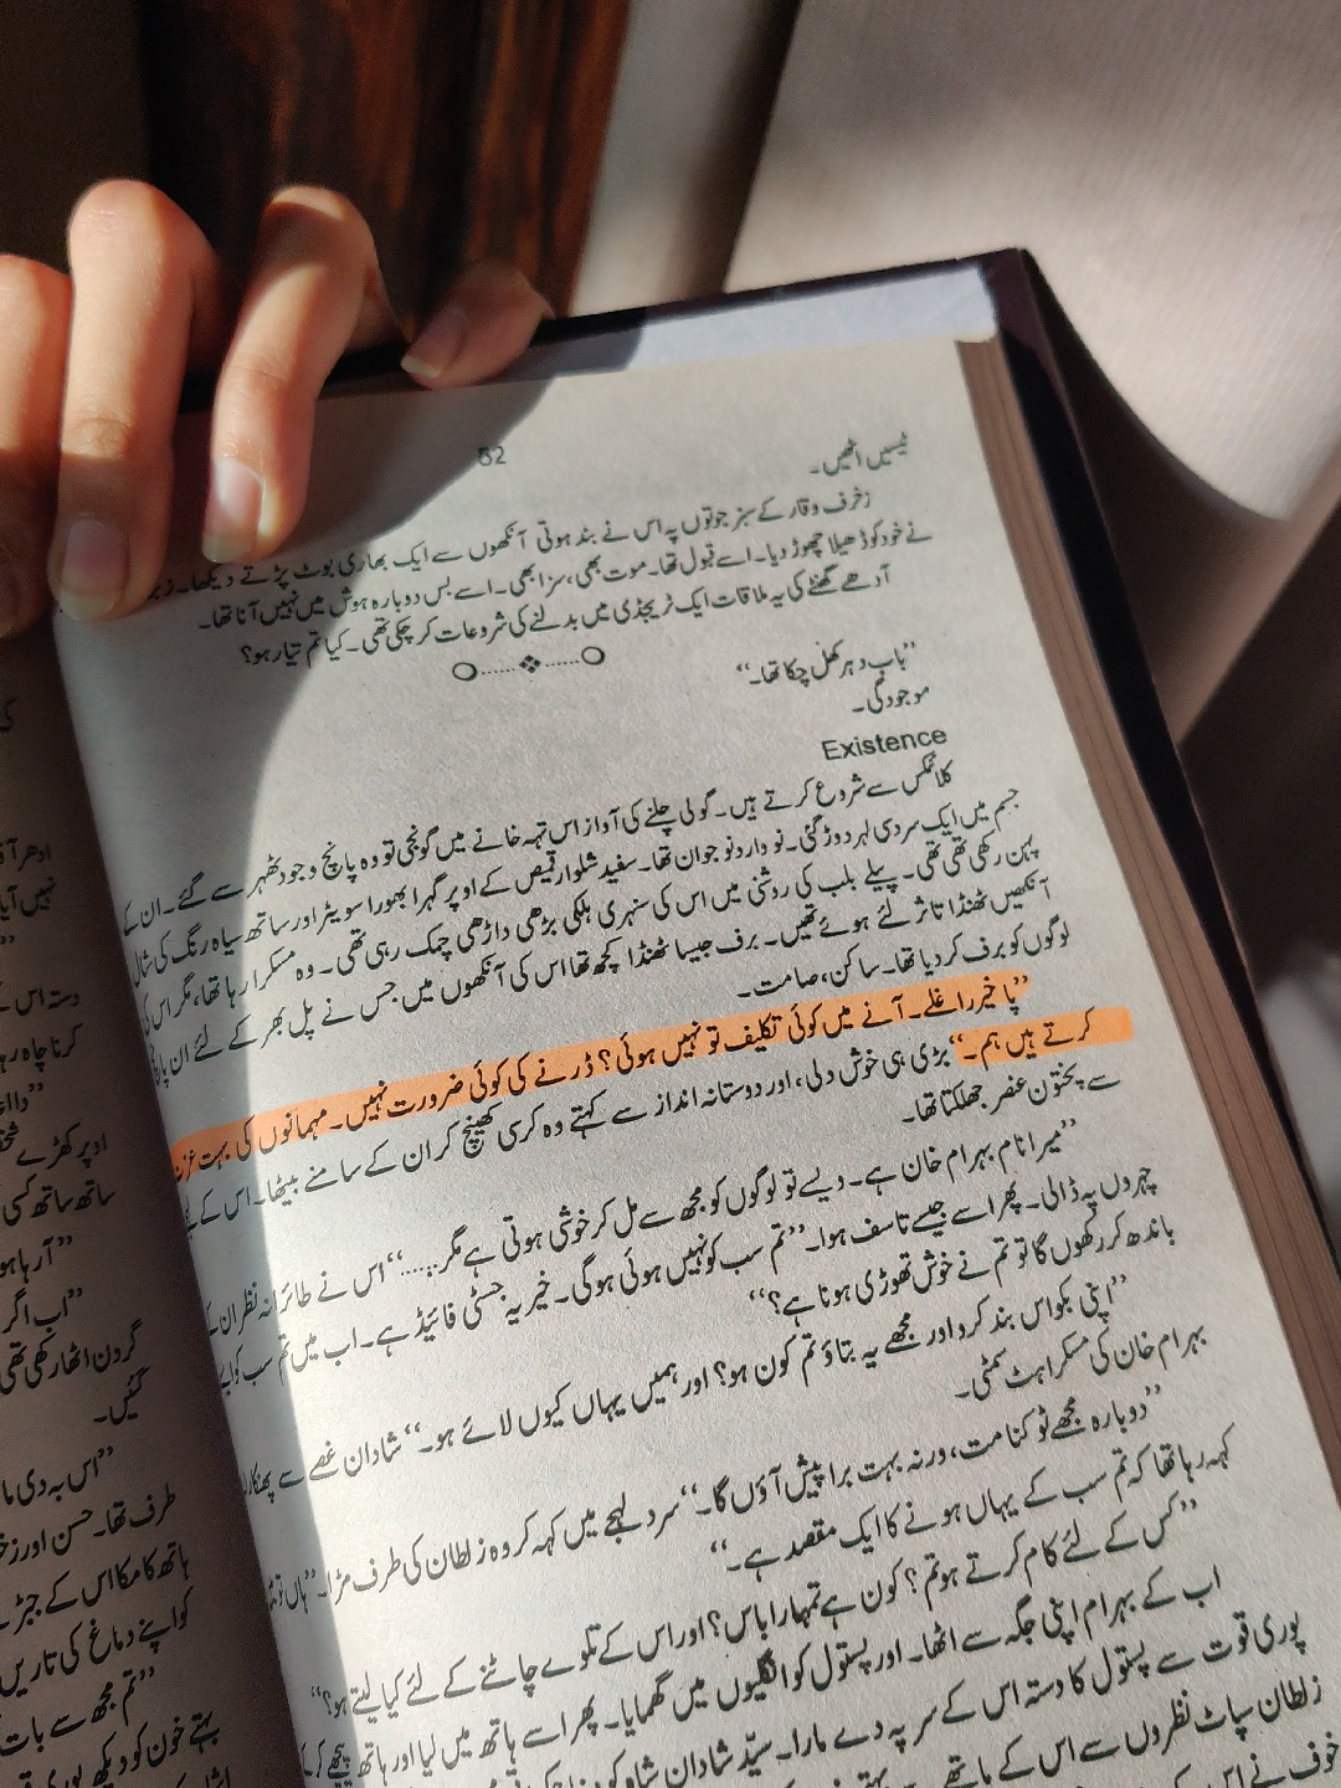 52
ٹیسیں اٹھیں۔
زخرف وقار کے سبز جوتوں پہ اس نے بند ہوتی آنکھوں سے ایک بھاری بوٹ پڑتے دیکھا۔
نے خود کو ڈھیلا چھوڑ دیا۔ اسے قبول تھا۔ موت بھی، سزا بھی۔ اسے بس دوبارہ ہوش میں نہیں آنا تھا۔
آدھے گھنٹے کی یہ ملاقات ایک ٹریجڈی میں بدلنے کی شروعات کر چکی تھی۔ کیا تم تیار ہو؟
”باب دہر کھل چکا تھا۔“
موجودگی۔
Existence
کلائمکس سے شروع کرتے ہیں۔ گولی چلنے کی آواز اس تہہ خانے میں گونجی تو وہ پانچ وجود ٹھہر سے گئے۔ ان کے
جسم میں ایک سردی لہر دوڑ گئی۔ نووارد نوجوان تھا۔ سفید شلوار قمیص کے اوپر گہرا بھورا سویٹر اور ساتھ سیاہ رنگ کی شال
پہن رکھی تھی تھی۔ پیلے بلب کی روشنی میں اس کی سنہری ہلکی بڑھی داڑھی چمک رہی تھی۔ وہ مسکرا رہا تھا، مگر اس کی
آنکھیں ٹھنڈا تاثر لئے ہوئے تھیں۔ برف جیسا ٹھنڈا کچھ تھا اس کی آنکھوں میں جس نے پل بھر کے لئے ان پانچ
لوگوں کو برف کر دیا تھا۔ ساکن، صامت۔
”پاخیر راغلے۔ آنے میں کوئی تکلیف تو نہیں ہوئی؟ ڈرنے کی کوئی ضرورت نہیں۔ مہمانوں کی بہت عزت
کرتے ہیں ہم۔“ بڑی ہی خوش دلی، اور دوستانہ انداز سے کہتے وہ کرسی کھینچ کر ان کے سامنے بیٹھا۔ اس کے
سے پختون عنصر جھلکتا تھا۔
”میرا نام بہرام خان ہے۔ ویسے تو لوگوں کو مجھ سے مل کر خوشی ہوتی ہے مگر......“ اس نے طائرانہ نظر ان کے
چہروں پہ ڈالی۔ پھر اسے جیسے تاسف ہوا۔ ”تم سب کو نہیں ہوئی ہوگی۔ خیر یہ جسٹی فائیڈ ہے۔ اب میں تم سب کو ایسے
باندھ کر رکھوں گا تو تم نے خوش تھوڑی ہونا ہے؟“
”اپنی بکواس بند کرو اور مجھے یہ بتاؤ تم کون ہو؟ اور ہمیں یہاں کیوں لائے ہو۔“ شادان غصے سے پھنکارا۔
بہرام خان کی مسکراہٹ سمٹی۔
”دوبارہ مجھے ٹوکنا مت، ورنہ بہت برا پیش آؤں گا۔“ سرد لہجے میں کہہ کر وہ زلطان کی طرف مڑا۔ ”ہاں تو
کہہ رہا تھا کہ تم سب کے یہاں ہونے کا ایک مقصد ہے۔“
”کس کے لئے کام کرتے ہو تم؟ کون ہے تمہارا باس؟ اور اس کے تلوے چاٹنے کے لئے کیا لیتے ہو؟“
اب کے بہرام اپنی جگہ سے اٹھا۔ اور پستول کو انگلیوں میں گھمایا۔ پھر اسے ہاتھ میں لیا اور ہاتھ پیچھے کر کے
پوری قوت سے پستول کا دستہ اس کے سر پہ دے مارا۔ سیّد شادان شاہ کو
زلطان سپاٹ نظروں سے اس کے ماتھے سے بہتے
خوف نے اس
ادھر آ
نہیں آیا
دستہ اس
کرنا چاہ رہا
اوپر کھڑے
ساتھ ساتھ کسی
”آ رہا ہو
”اب اگر
گردن اٹھا رکھی تھی
گئیں۔
”اس بہ دی ما
طرف تھا۔ حسن اور زخ
ہاتھ کا مکا اس کے جبڑے
کو اپنے دماغ کی تاریں
”تم مجھ سے بات
بہتے خون کو دیکھ